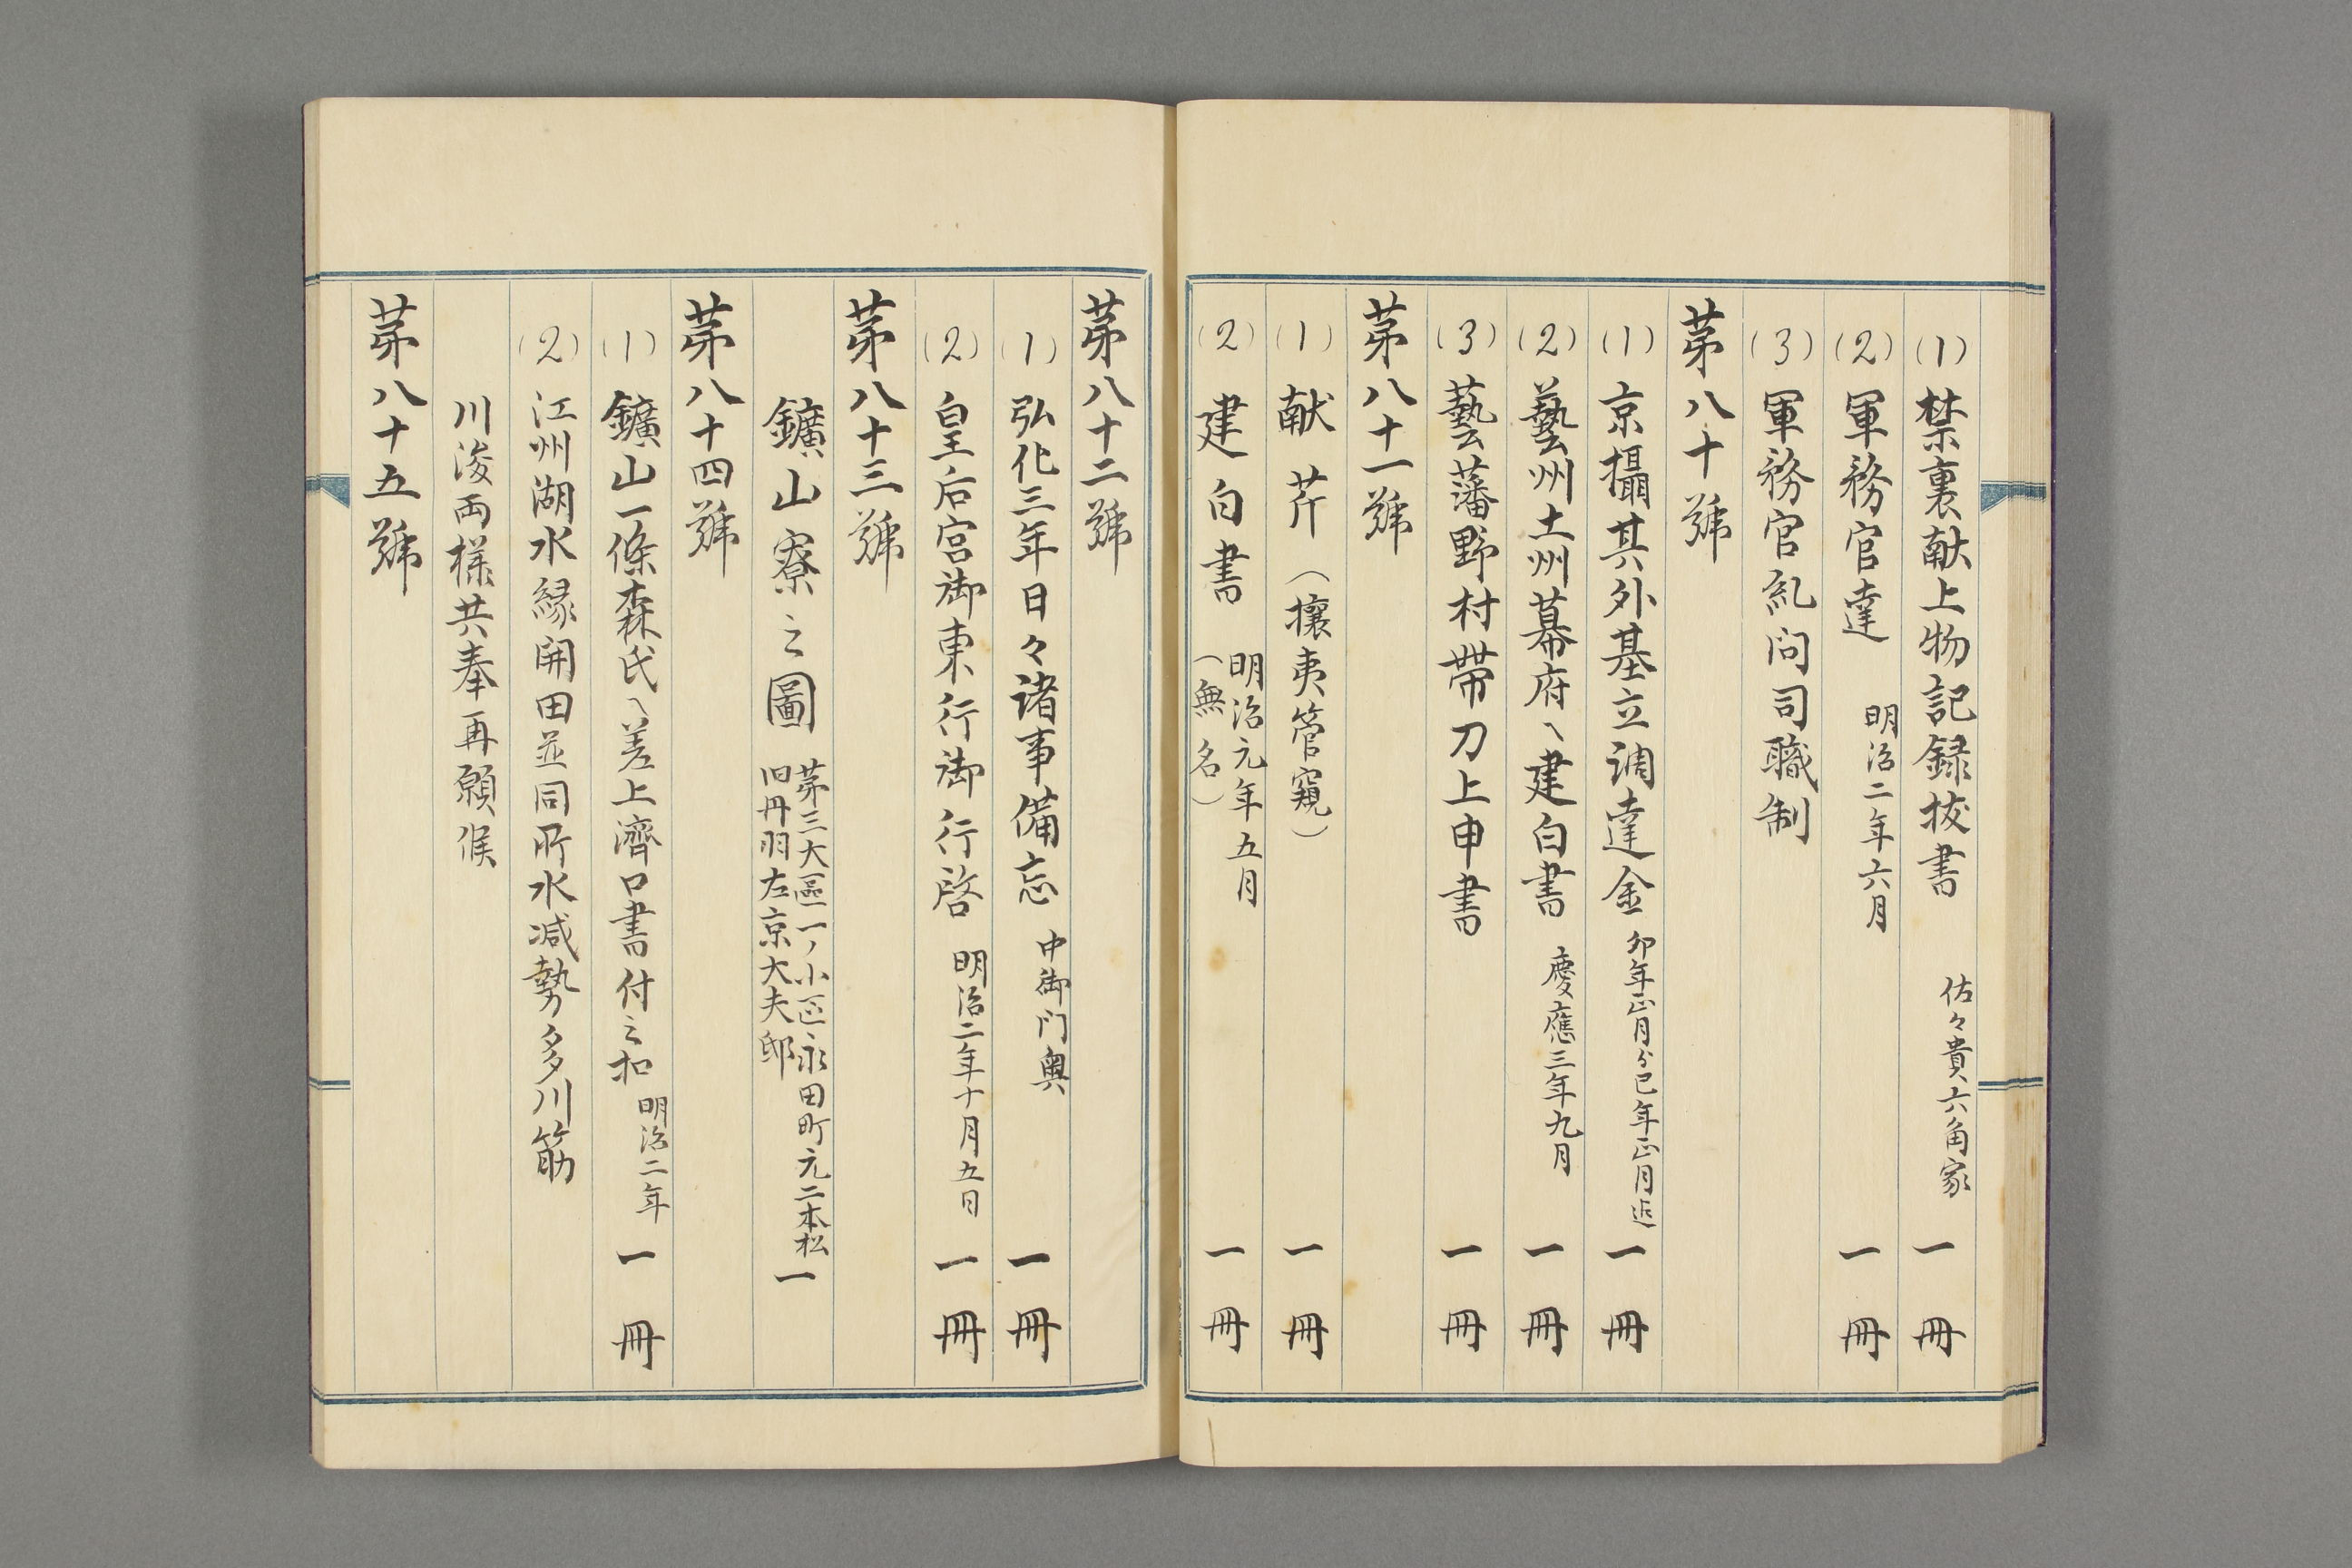 (1) 禁裏献上物記録抜書 佐々貴六角家 一冊
(2) 軍務官達 明治二年六月 一冊
(3) 軍務官糺问司職制
第八十號
(1) 京攝其外基立調達金 卯年正月分巳年正月迄 一冊
(2) 藝州土州幕府へ建白書 慶應三年九月 一冊
(3) 藝藩野村帶刀上申書 一冊
第八十一號
(1) 献芹（攘夷管窺） 一冊
(2) 建白書 明治元年五月
（無名） 一冊
第八十二號
(1) 弘化三年日々諸事備忘 中御门奥 一冊
(2) 皇后宮御東行御行啓 明治二年十月五日 一冊
第八十三號
鑛山寮之圖 第三大區一ノ小区永田町元二本松
旧丹羽左京大夫邸 一
第八十四號
(1) 鑛山一條森氏へ差上濟口書付之扣 明治二年 一冊
(2) 江州湖水縁開田並同所水減勢多川筋
川浚両様共奉再願候
第八十五號